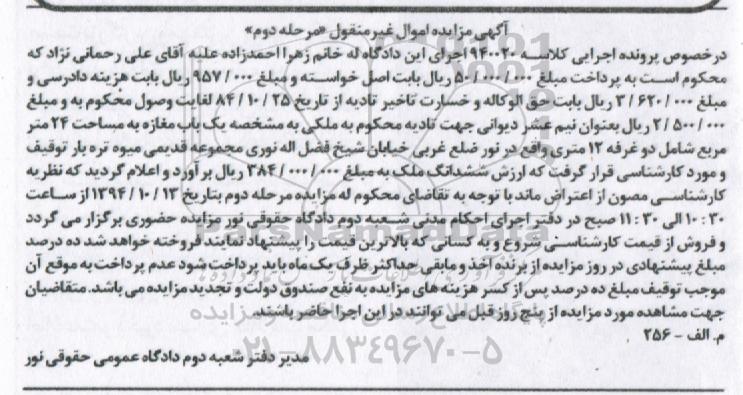 آگهی مزایده اموال غیرمنقول «مرحله دوم»
درخصوص پرونده اجرایی کلاسه ۹۴۰۲۰۰ اجرای این دادگاه له خانم زهرا احمدزاده علیه آقای علی رحمانی نژاد که
محکوم است به پرداخت مبلغ ۵۰/۰۰۰/۰۰۰ ریال بابت اصل خواسته و مبلغ ۹۵۷/۰۰۰ ریال بابت هزینه دادرسی و
مبلغ ۳/۶۲۰/۰۰۰ ریال بابت حق الوکاله و خسارت تاخیر تادیه از تاریخ ۸۴/۱۰/۲۵ لغایت وصول محکوم به و مبلغ
۲/۵۰۰/۰۰۰ ریال بعنوان نیم عشر دیوانی جهت تادیه محکوم به ملکی به مشخصه یک باب مغازه به مساحت ۲۴ متر
مربع شامل دو غرفه ۱۲ متری واقع در نور ضلع غربی خیابان شیخ فضل اله نوری مجموعه قدیمی میوه تره بار توقیف
و مورد کارشناسی قرار گرفت که ارزش ششدانگ ملک به مبلغ ۳۸۴/۰۰۰/۰۰۰ ریال برآورد و اعلام گردید که نظریه
کارشناسی مصون از اعتراض ماند با توجه به تقاضای محکوم له مزایده مرحله دوم بتاریخ ۱۳۹۴/۱۰/۱۳ از ساعت
۱۰:۳۰ الی ۱۱:۳۰ صبح در دفتر اجرای احکام مدنی شعبه دوم دادگاه حقوقی نور مزایده حضوری برگزار می گردد
و فروش از قیمت کارشناسی شروع و به کسانی که بالاترین قیمت را پیشنهاد نمایند فروخته خواهد شد ده درصد
مبلغ پیشنهادی در روز مزایده از برنده اخذ و مابقی حداکثر ظرف یک ماه باید پرداخت شود عدم پرداخت به موقع آن
موجب توقیف مبلغ ده درصد پس از کسر هزینه های مزایده به نفع صندوق دولت و تجدید مزایده می باشد. متقاضیان
جهت مشاهده مورد مزایده از پنج روز قبل می توانند در این اجرا حاضر باشند.
م. الف - ۲۵۶
مدیر دفتر شعبه دوم دادگاه عمومی حقوقی نور
ParsNamadData
۰۲۱-۸۸۳۴۹۶۷۰-۵